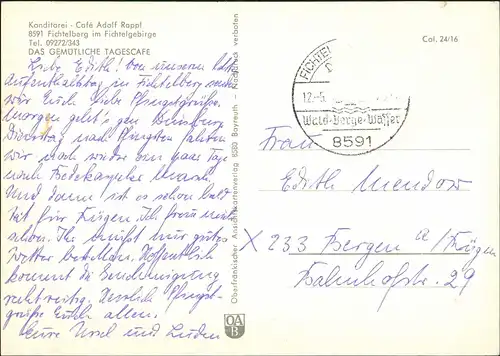 Konditorei - Café Adolf Rappl
8591 Fichtelberg im Fichtelgebirge
Tel. 09272/343
DAS GEMÜTLICHE TAGESCAFE
Col. 24/16
Liebe Edith! Von unserem
Aufenthaltstag in Fichtelberg senden
wir Euch liebe Pfingstgrüße.
Morgen geht's gen Bamberg
Dienstag nach Pfingsten fahren
wir noch wieder ein paar Tage
nach
Und dann ist es schon bald
Zeit für Rügen. Ich freue mich
schon. Ihr müßt nur gutes
Wetter bestellen. Hoffentlich
kommt die Genehmigung
rechtzeitig. Herzlich Pfingst-
grüße Euch allen.
Eure Ursel und
Oberfränkischer Ansichtskartenverlag 8580 Bayreuth - Nachdruck verboten
OA
B
FICHTEL
12.-5.
Wald-Berge-Wasser
8591
Frau
Edith Mendow
X 233 Bergen a/Rügen
Bahnhofstr. 29